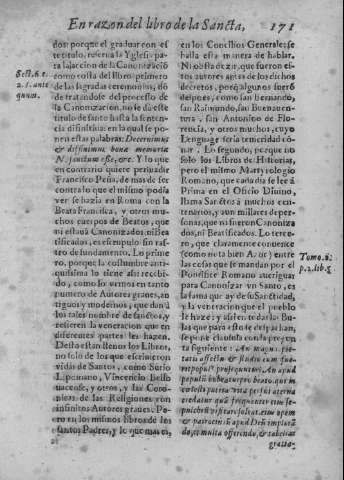 En razon del libro de la Sancta, 171
dos: porque el graduar con es
te titulo, reserua la Yglesia pa
ra la accion de la Canonizaciō
como consta del libro primero
Sect. 6. c.
2. §. ante
quam.
de las sagradas ceremonias, dō
de tratandose del processo de
la Canonizacion, no se dà este
titulo de santo hasta la senten
cia difinitiua: en la qual se po
nen estas palabras: Decernimus
& diffinimus bonæ memoriæ
N. sanctum esse, &c. Y lo que
en contrario quiere persuadir
Francisco Peña, de mas de ser
contra lo que el mismo podia
ver se hazia en Roma con la
Beata Francisca, y otros mu-
chos cuerpos de Beatos, que
ni estauā Canonizados ni Bea
tificados, es exemplo sin ras-
tro de fundamento. Lo prime
ro, porque la costumbre anti-
quissima lo tiene assi recebi-
do, como lo vemos en tanto
numero de Autores graues, an
tiguos y modernos, que dan a
los tales nombre de sanctos, y
refieren la veneracion que en
diferentes partes les hazen.
Desto estan llenos los Libros,
no solo de los que escriuieron
vidas de Santos, como Surio
Lipomano, Vincencio Beluа-
nacense, y otros, y las Coroni-
cas de las Religiones con
infinitos Autores graues. Pe-
ro en los mismos libros de los
santos Padres, y lo que mas es,
en los Concilios Generales se
halla esta manera de hablar.
Ni obsta dezir, que fueron es
tos autores antes de los dichos
decretos, porq̄ algunos fuerō
despues, como san Bernardo,
san Raimundo, san Buenauen-
tura, san Antonino de Flo-
rencia, y otros muchos, cuyo
Lenguage seria temeridad cō-
nar. Lo segundo, porque no
solo los Libros de Historias,
pero el mismo Martyrologio
Romano, que cada dia se lee à
Prima en el Oficio Diuino,
llama Sanctos à muchos cen-
tenares, y aun millares de per-
sonas, que ni fueron Canoniza
dos, ni Beatificados. Lo terce-
ro, que claramente conuence
(como nota bien Azur) entre
Tomo. 2.
p. 2. lib. 5
las cosas que se mandan por el
Pontifice Romano aueriguar
para Canonizar vn Santo, es
la fama que ay de su Sanctidad,
y la veneracion que el pueblo
le haze: y assi en todas las Bu-
las que para esto se despachan,
se pone clausula con la pregun
ta siguiente: An magna pie-
tatis affectu & studio eum fue-
rit populus prosequutus. An apud
populũ habeatur pro beato, qui in
cœlesti patria vita perfui æterna
credatur quã frequenter eius se-
pulchrũ visitari soleat, eius opem
& patrocinũ apud Deũ implorã
do, & multa offerendo, & tabellas
gratia-